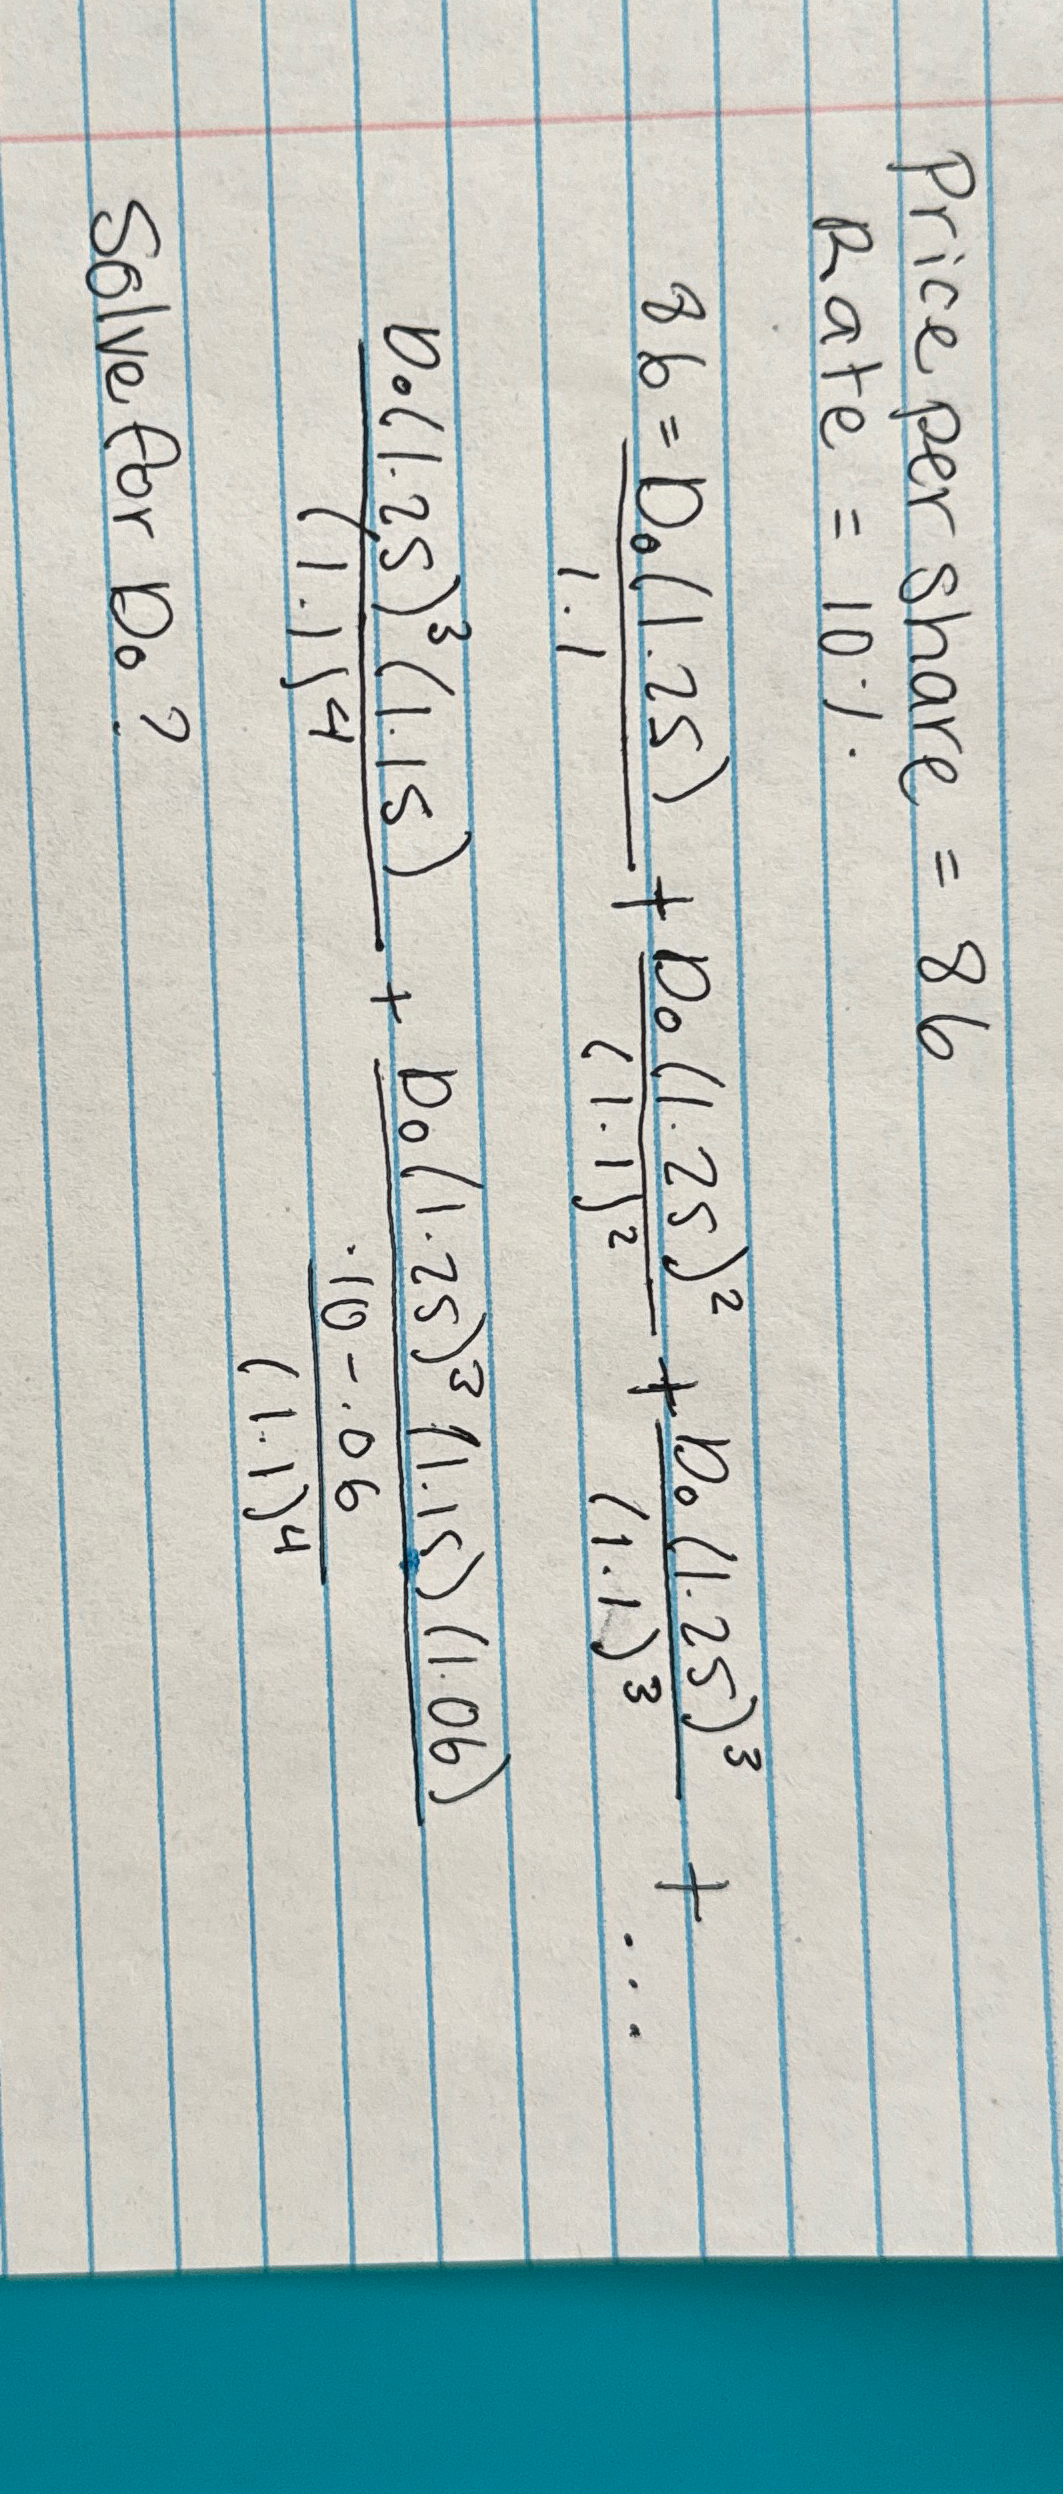 Price per share = 86
Rate = 10%
86 = D₀(1.25) / 1.1 + D₀(1.25)² / (1.1)² + D₀(1.25)³ / (1.1)³ + ...
D₀(1.25)³(1.15) / (1.1)⁴ + D₀(1.25)³(1.15)(1.06) / .10 - .06 / (1.1)⁴
Solve for D₀?